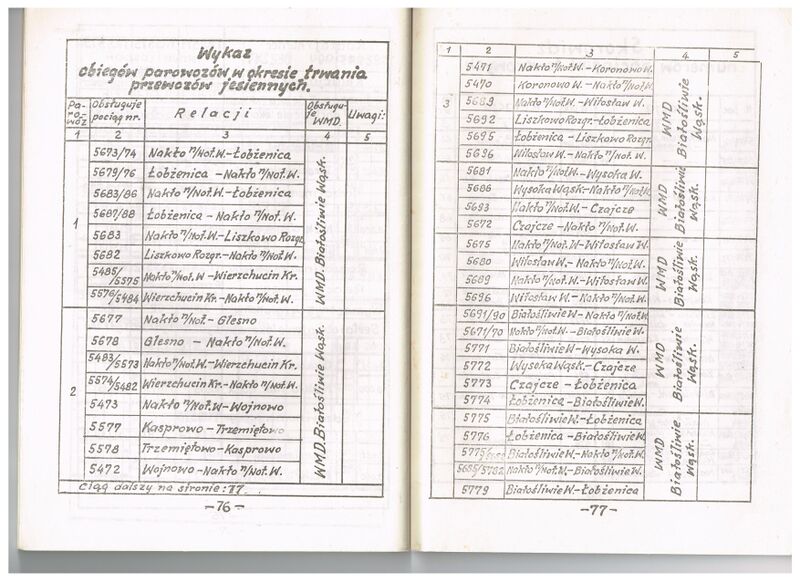 Wykaz
obiegów parowozów w okresie trwania
przewozów jesiennych.
Pa-ro-wóz Obsługuje pociąg nr. Relacji Obsługuje WMD. Uwagi:
1 2 3 4 5
1
5673/74 Nakło n/Not.W.-Łobżenica
5679/76 Łobżenica - Nakło n/Not.W.
5683/86 Nakło n/Not.W.-Łobżenica
5687/88 Łobżenica - Nakło n/Not.W.
5683 Nakło n/Not.W.-Liszkowo Rozgr.
5682 Liszkowo Rozgr.-Nakło n/Not.W.
5485/5575 Nakło n/Not.W.-Wierzchucin Kr.
5576/5484 Wierzchucin Kr.-Nakło n/Not.W.
WMD. Białośliwie Wąsk.
2
5677 Nakło n/Not.-Glesno
5678 Glesno - Nakło n/Not.W.
5483/5573 Nakło n/Not.W.-Wierzchucin Kr.
5574/5482 Wierzchucin Kr.-Nakło n/Not.W.
5473 Nakło n/Not.W-Wojnowo
5577 Kasprowo-Trzemiętowo
5578 Trzemiętowo-Kasprowo
5472 Wojnowo-Nakło n/Not.W.
WMD. Białośliwie Wąsk.
Ciąg dalszy na stronie:77.
-76-
1 2 3 4 5
3
5471 Nakło n/Not.W.-Koronowo W.
5470 Koronowo W. - Nakło n/Not.W.
5689 Nakło n/Not.W.-Witosław W.
5692 Liszkowo Rozgr.-Łobżenica
5695 Łobżenica - Liszkowo Rozgr.
5696 Witosław W.-Nakło n/Not. W.
WMD Białośliwie Wąsk.
5681 Nakło n/Not.W.-Wysoka W.
5686 Wysoka Wąsk-Nakło n/Not.W.
5693 Nakło n/Not.W.-Czajcze
5672 Czajcze-Nakło n/Not.W.
WMD Białośliwie Wąsk.
5675 Nakło n/Not.W-Witosław W.
5680 Witosław W.-Nakło n/Not.W.
5689 Nakło n/Not.W.-Witosław W.
5696 Witosław W.-Nakło n/Not.W.
WMD Białośliwie Wąsk.
5691/90 Białośliwie W.-Nakło n/Not.W.
5671/70 Nakło n/Not.W.-Białośliwie W.
5771 Białośliwie W-Wysoka W.
5772 Wysoka Wąsk.-Czajcze
5773 Czajcze-Łobżenica
5774 Łobżenica-Białośliwie W.
WMD Białośliwie Wąsk.
5775 Białośliwie W.-Łobżenica
5776 Łobżenica-Białośliwie W.
Białośliwie W.-Nakło n/Not.W.
5685/5782 Nakło n/Not.W.-Białośliwie W.
5779 Białośliwie W.-Łobżenica
WMD Białośliwie Wąsk.
-77-